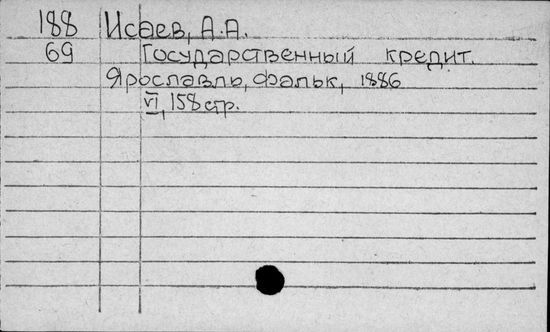 188 Исаев, А.А.
69 Государственный кредит.
Ярославль, Фальк, 1886
VI, 158 стр.